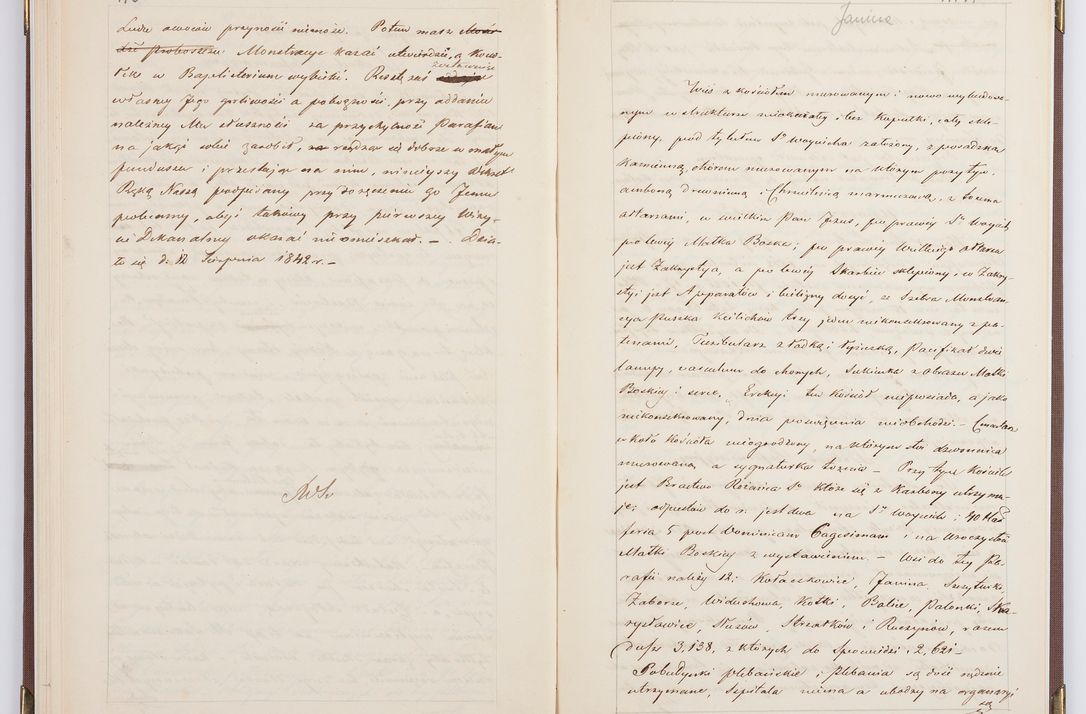 Ludu owoców przynosić niemoże. Potem masz
Monstrancye kazać utwierdzić, a Kous-
w Baptisterium wybielić. Resztę zaś zostawuie
własney Jego gorliwości a pobożności, przy oddaniu
należney Mu słuszności za przychylność Parafian
na jaką sobie zarobił, rządząc się dobrze w małym
funduszu i przestając na nim, niniejszy Dekret
Ręką Naszą podpisany przy doręczeniu go Jemu
polecamy, abyś takowy przy pierwszey Wizy-
Dekanalney okazać nieomieszkał. — . Dzia-
ło się d. 12 Sierpnia 1842 r. —
Janina
Wieś z kościołem murowanym i nowo wybudowa-
nym w strukturze niokazały i bez Kopułki, cały skle-
piony, pod tytułem Sº Woyciecha założony, z posadzką
Kamienną, chórem murowanym na którym pozytyw,
amboną drewnianą, Chrzcilnicą marmurową, z trzema
ołtarzami, w wielkim Pan Jezus, po prawéy Sº Woyciech,
po lewéy Matka Boska; po prawéy Wielkiego ołtarza
jest Zakrystya, a po lewéy Skarbiec sklepiony, w Zakry-
styi jest Apparatów i bielizny dosyć, ze Srebra Monstran-
cya Puszka Kielichów trzy jeden niekonsekrowany z pa-
tenami, Turibularz z łódką i łyżeczką, Pacifikał dwie
lampy, vasculum do chorych, Sukienka z obrazu Matki
Boskiey i serce. Erekcyi ten kościół nieposiada, a jako
niekonsekrowany, dnia poświęcenia nieobchodzi. — Cmentarz
w koło kościoła nieogrodzony, na którym stoi dzwonnica
murowana, a sygnaturka — Przy tym Kościele
jest Bractwo Różańca Sº które się z Karbony utrzymu-
je; odpustów do n. jest dwa na Sº Woyciech i 40 God
feria 5 post Dominicam Cagesimam i na Uroczystość
Matki Boskiey z wystawieniem. — Wsi do tey Pa-
rafii należy 12: Kołaczkowice, Janina, Szczytniki,
Zaborze, Widuchowa, Kotki, Balice, Palonki, Ska-
rzysławice, Służów, Strzałków i Ruczynów, razem
dusz 3,138, z których do spowiedzi 2,621 —
Pobudynki plebańskie i plebania są dość rządnie
utrzymane, Szpitala niema a ubodzy na organaryi
są